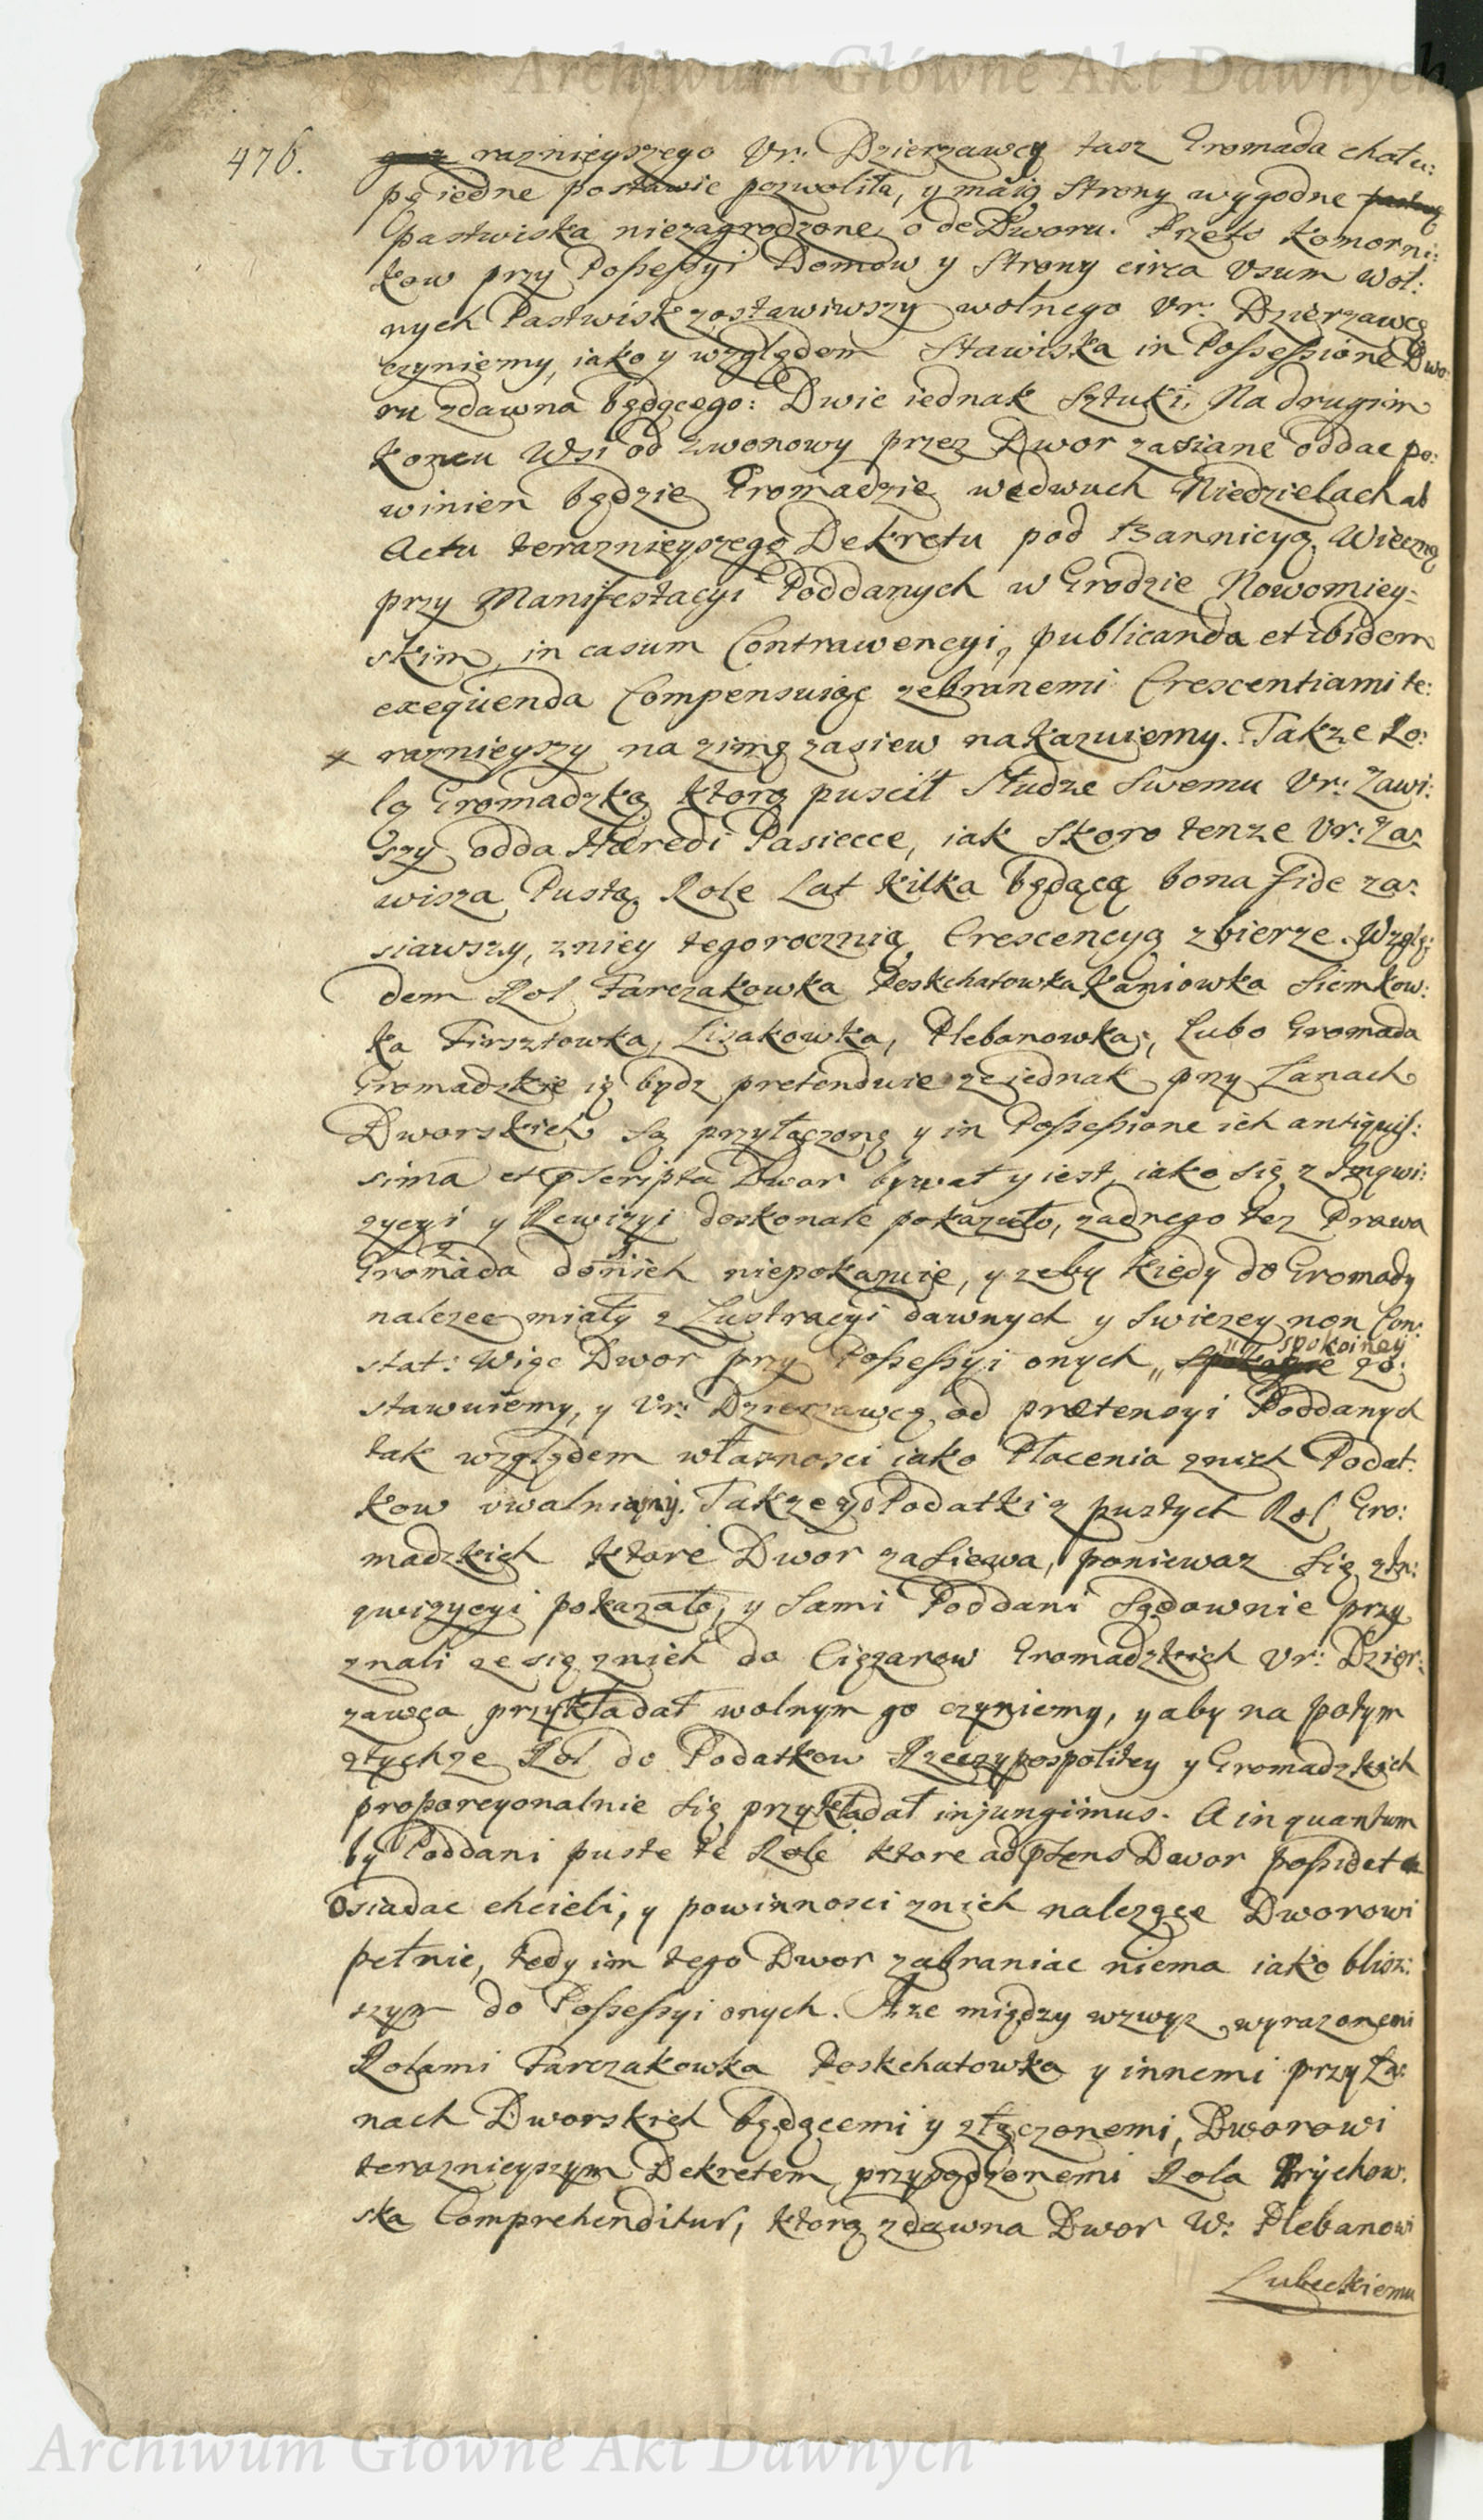 Archiwum Główne Akt Dawnych
476.
raznieyszego Vr: Dzierzawcy tasz Gromada chału:
pę iedne postawic pozwoliła, y maią Strony wygodne
pastwiska niezagrodzone ode Dworu. Przeto Komorni:
kow przy Possessyi Domow y Strony circa Usum wol:
nych Pastwisk zostawiwszy wolnego Vr: Dzierzawcę
czyniemy, iako y względem Stawiska in Possessione Dwo:
ru zdawna będącego: Dwie iednak Sztuki, Na drugim
koncu Wsi od zwonowy przez Dwor zasiane oddac po:
winien będzie Gromadzie wedwuch Niedzielach ab
Actu teraznieyszego Dekretu pod Bannicyą Wieczną
przy Manifestacyi Poddanych w Grodzie Nowomiey:
skim, in casum Contrawencyi, publicanda et ibidem
exequenda Compensuiąc zebranemi Crescentiami te:
raznieyszy na zimę zasiew nakazuiemy. Takze Ro:
lą Gromadzką ktorą puscił Słudze Swemu Vr: Zawi:
szy odda Hæredi Pasiecce, iak Skoro tenze Vr: Za:
wisza Pustą Rolę Lat kilka będącą bona fide za:
siawszy, zniey tegorocznią Crescencyą zbierze. Wzglę:
dem Rol Farczakowka Poskchatowka Kaniowka Siemkow:
ka Firsztowka, Lisakowka, Plebanowka, Lubo Gromada
Gromadzkie ię bydz pretenduie ze iednak przy Łanach
Dworskich Są przyłączone y in Possessione ich antiquis:
sima et pscripta Dwor bywał y iest, iako Się z Inqwi:
zycyi y Rewizyi doskonale pokazuło, zadnego tez Prawa
Gromada donich niepokazuie, y zeby kiedy do Gromady
nalezec miały z Lustracyi dawnych y Swiezey non Con:
stat: Więc Dwor przy Possessyi onych „ spokoiney zo:
stawuiemy, y Vr: Dzierzawcę od prætensyi Poddanych
tak względem własnosci iako Płacenia znich Podat:
kow uwalniamy. Takze y Podatki z pustych Rol Gro:
madzkich ktore Dwor zasiewa, poniewaz Się zIn:
qwizycyi pokazało, y Sami Poddani Sądownie przy
znali ze się znich do Cięzarow Gromadzkich Vr: Dzier:
zawca przykładał wolnym go czyniemy, y aby na potym
ztychze Rol do Podatkow Rzeczypospolitey y Gromadzkich
proporcyonalnie Się przykładał injungimus. A in quantum
by Poddani puste te Role ktore ad psens Dwor possidet
osiadac chcieli, y powinnosci znich nalezące Dworowi
pełnic, tedy im tego Dwor zabraniac niema iako blisz:
szym do Possessyi onych. A ze między wzwyz wyrazonemi
Rolami Farczakowka Poskchatowka y innemi przy Ła:
nach Dworskich będącemi y złączonemi, Dworowi
teraznieyszym Dekretem przysądzonemi Rola Brychow:
ska Comprehenditur, ktorą zdawna Dwor W: Plebanowi
Lubeckiemu
Archiwum Główne Akt Dawnych